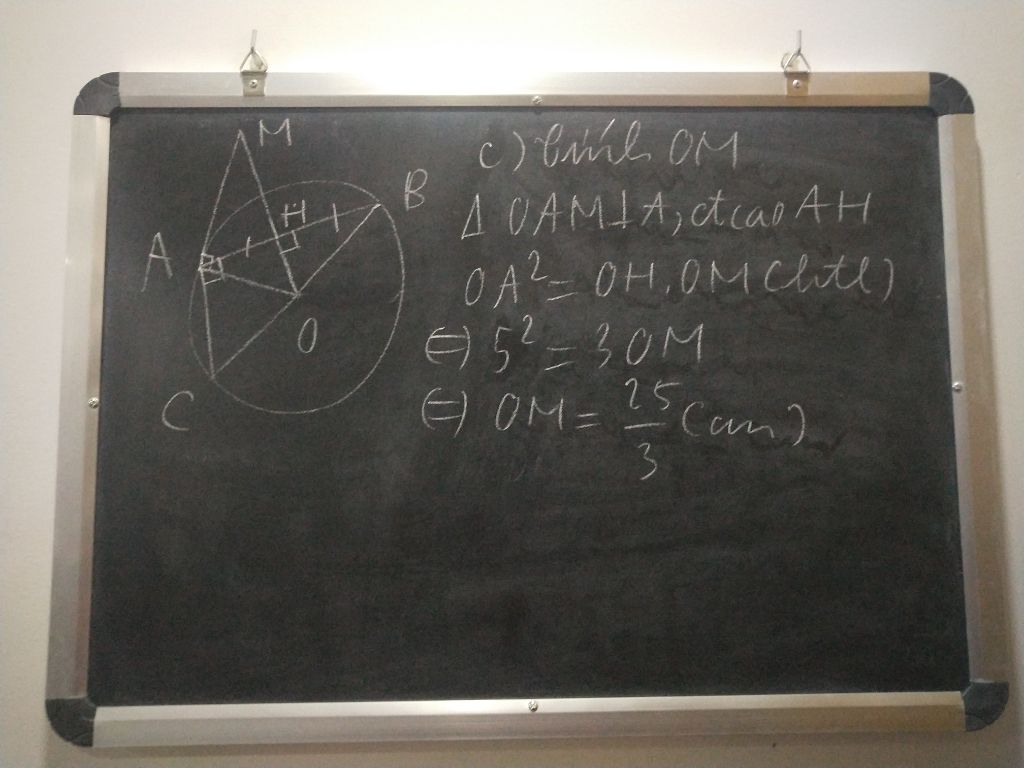 M
B
H
A
O
C
c) tính OM
Δ OAM ⊥ A, đt cao AH
OA² = OH . OM (htl)
(=) 5² = 3 OM
(=) OM = 25/3 (cm)